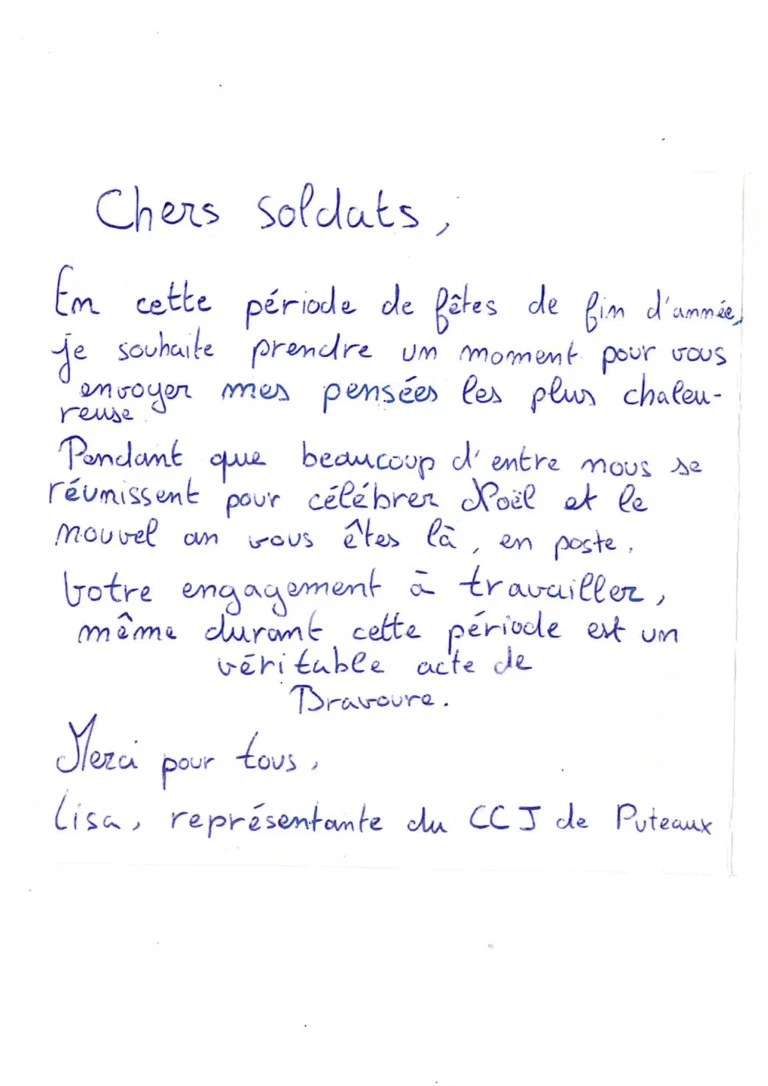 Chers soldats,
En cette période de fêtes de fin d'année,
je souhaite prendre un moment pour vous
envoyer mes pensées les plus chaleu-
reuse.
Pendant que beaucoup d'entre nous se
réunissent pour célébrer Noël et le
nouvel an vous êtes là, en poste.
Votre engagement à travailler,
même durant cette période est un
véritable acte de
Bravoure.
Merci pour tous,
Lisa, représentante du CCJ de Puteaux